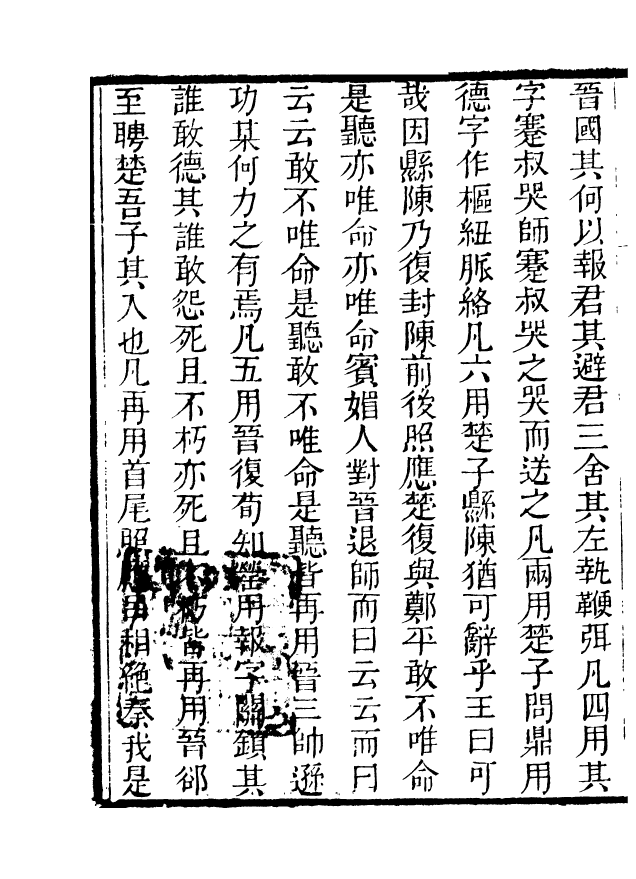 晉國其何以報君其避君三舍其左執鞭弭凡四用其
字蹇叔哭師蹇叔哭之哭而送之凡兩用楚子問鼎用
德字作樞紐脈絡凡六用楚子縣陳猶可辭乎王曰可
哉因縣陳乃復封陳前後照應楚復與鄭平敢不唯命
是聽亦唯命亦唯命賓媚人對晉退師而曰云云而曰
云云敢不唯命是聽敢不唯命是聽皆再用晉三帥遜
功某何力之有焉凡五用晉復荀知罃用報字關鎖其
誰敢德其誰敢怨死且不朽亦死且朽皆再用晉郤
至聘楚吾子其入也凡再用首尾照相絶秦我是